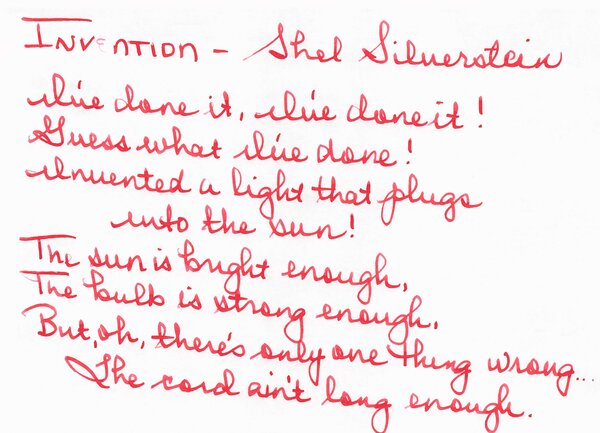 INVENTION - Shel Silverstein
I've done it, I've done it!
Guess what I've done!
Invented a light that plugs
into the sun!
The sun is bright enough,
The bulb is strong enough,
But, oh, there's only one thing wrong...
The cord ain't long enough.